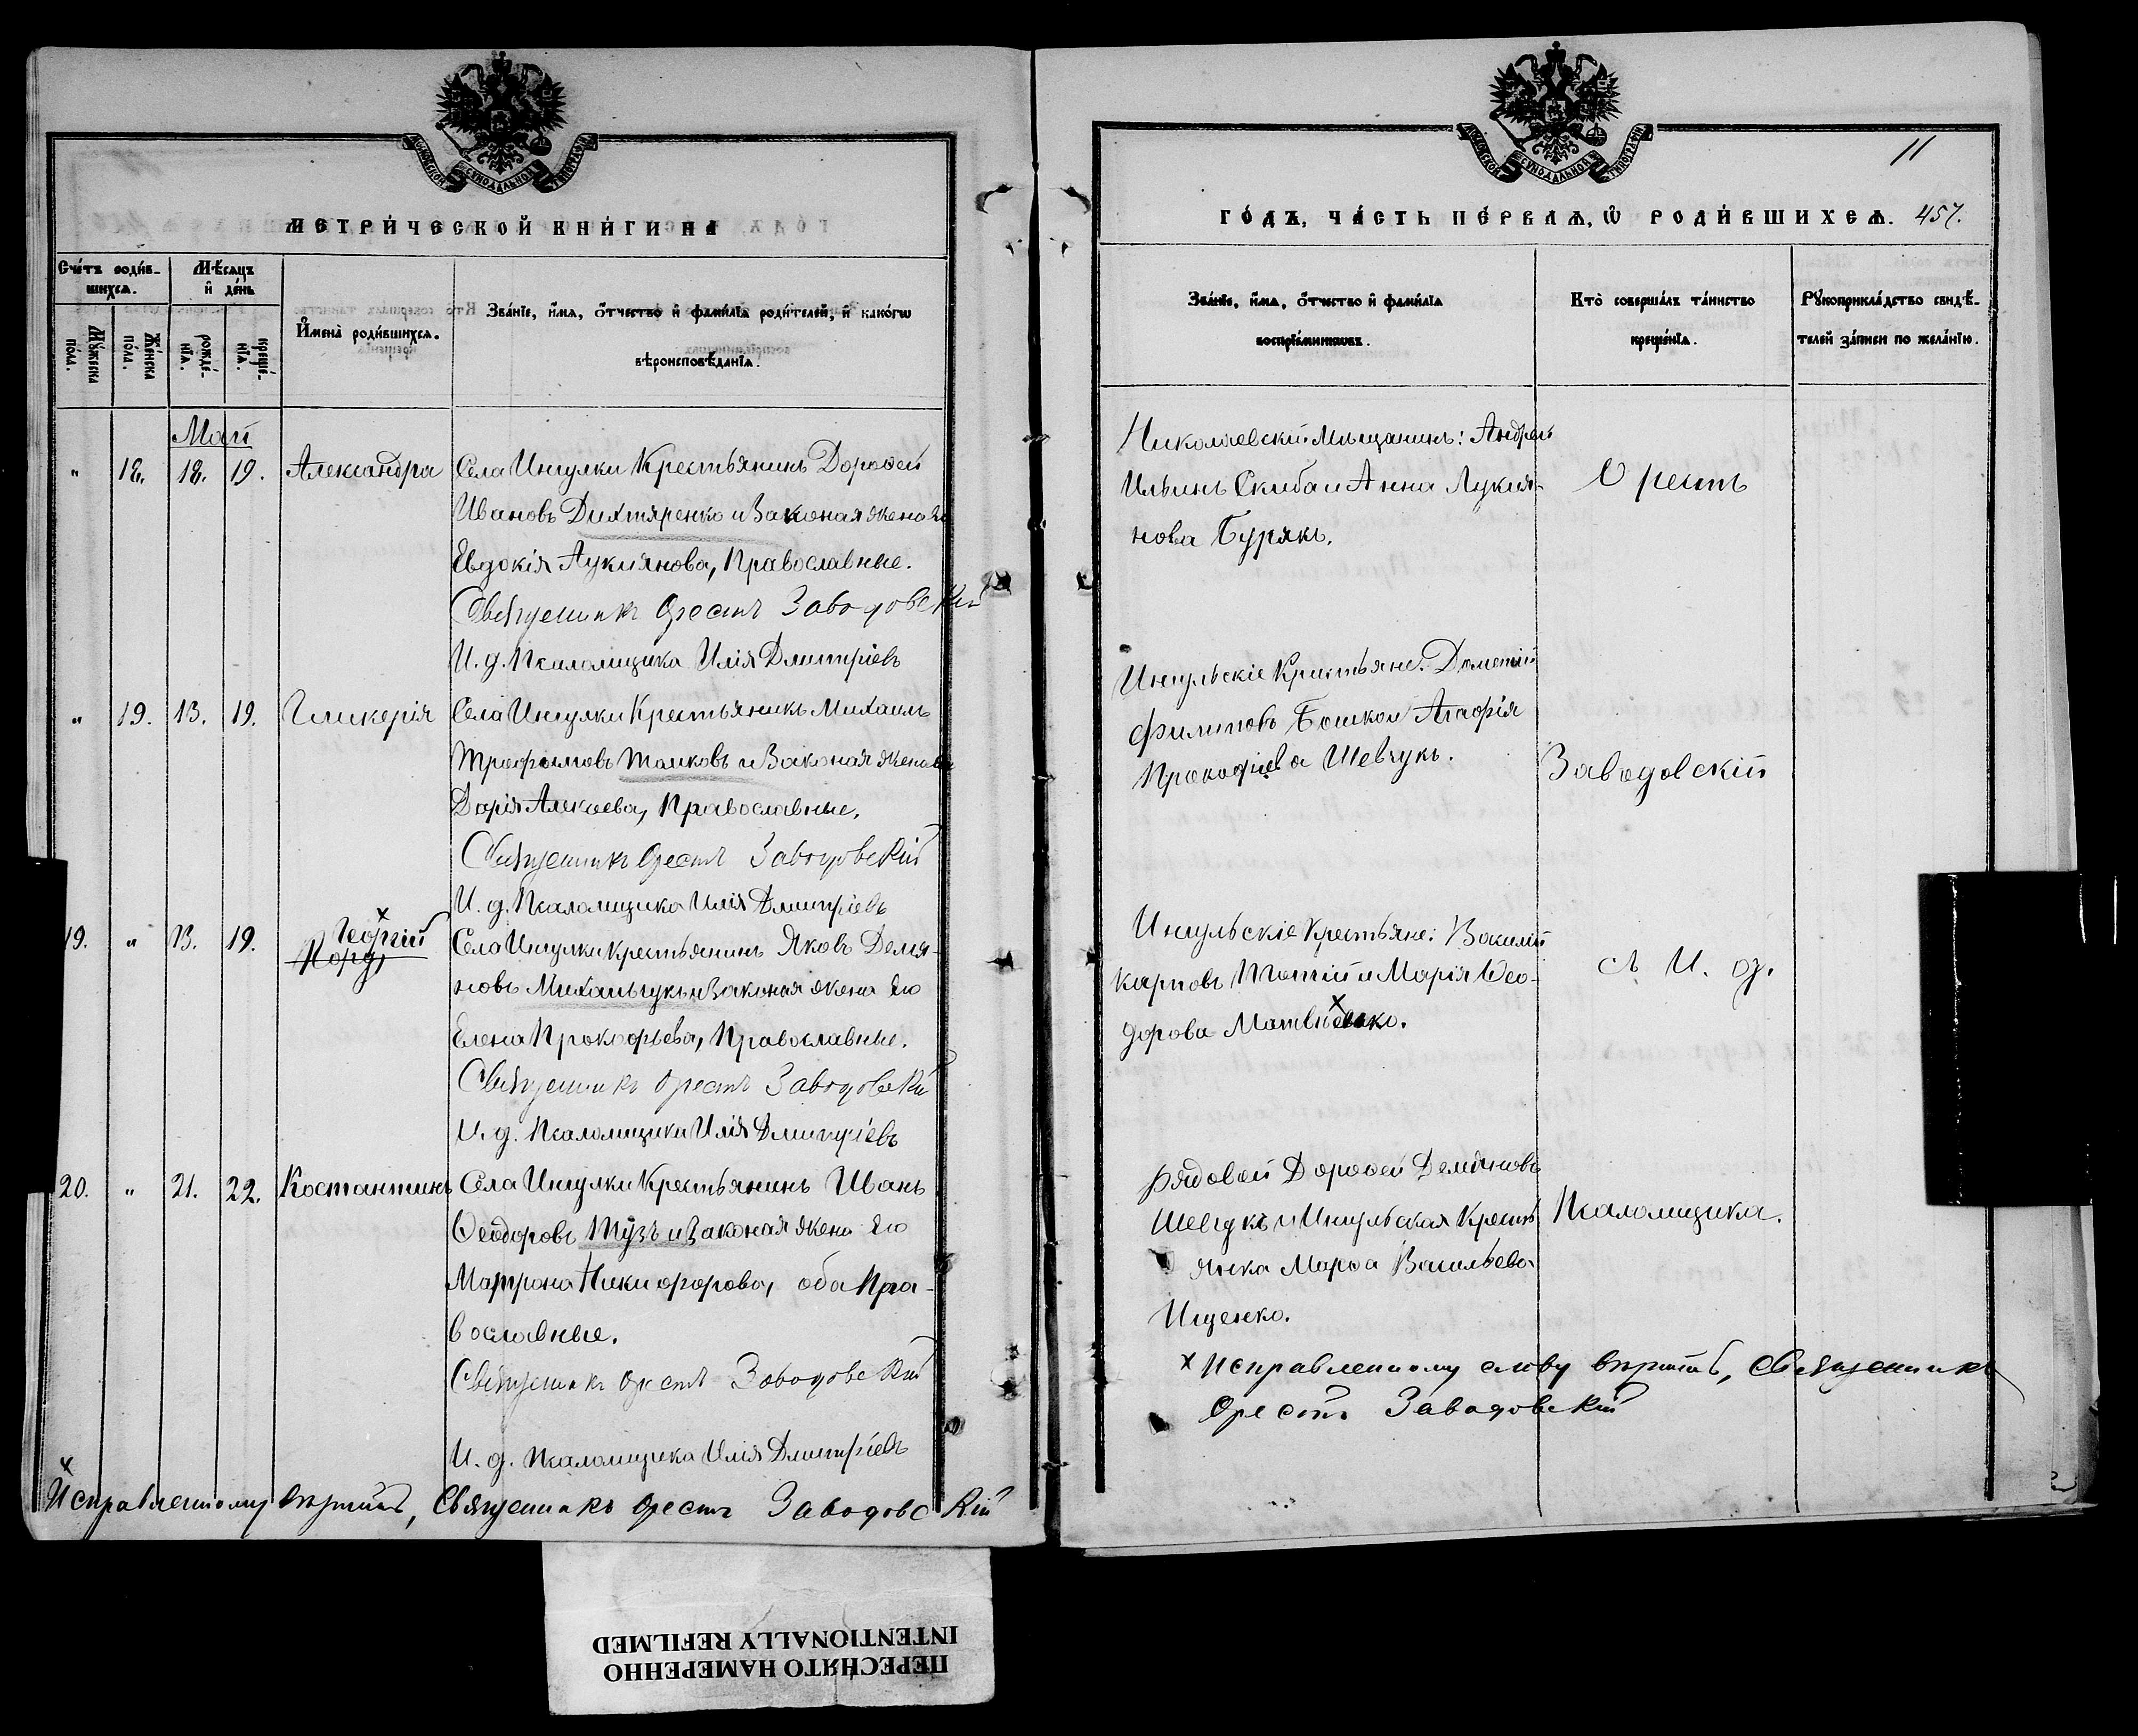 МОСКОВСКОЙ СѴНОДАЛЬНОЙ ТИПОГРАФІИ
МЕТРИ́ЧЕСКОЙ КНИ́ГИ НА
Сче́тъ роди́в-
шихсѧ.
Мѣ́сѧцъ
и҆ де́нь
Мꙋ́жеска по́ла.
Же́нска по́ла.
рожде́-
нїѧ.
креще́-
нїѧ.
И҆мена̀ роди́вшихсѧ.
Зва́нїе, и҆́мѧ, ѻ҆́тчество и҆ фами́лїѧ роди́телей, и҆ како́гѡ
вѣроисповѣ́данїѧ.
Май
" 18. 18. 19. Александра Села Ингулки Крестьянинъ Дорофей
Ивановъ Дихтяренко и Законая жена Его
Евдокія Лукиянова, Православные.
Священникъ Орестъ Заводовскій
И. д. Псаломщика Илія Дмитріевъ
" 19. 13. 19. Гликерія Села Ингулки Крестьянинъ Михаилъ
Трофимовъ Толковъ и Законая жена Его
Дарія Алексеева, Православные.
Священникъ Орестъ Заводовскій
И. д. Псаломщика Илія Дмитріевъ
19. " 13. 19. Георгій ×
Села Ингулки Крестьянинъ Яковъ Демя-
новъ Михальчукъ и Законая жена Его
Елена Прокофьева, Православные.
Священникъ Орестъ Заводовскій
И. д. Псаломщика Илія Дмитріевъ
20. " 21. 22. Костантинъ Села Ингулки Крестьянинъ Иванъ
Феодоровъ Тузъ и Законая жена Его
Матрона Никифорова, оба Пра-
вославные.
Священникъ Орестъ Заводовскій
И. д. Псаломщика Илія Дмитріевъ
× Исправленному вѣрить, Священникъ Орестъ Заводовскій
МОСКОВСКОЙ СѴНОДАЛЬНОЙ ТИПОГРАФІИ
11
ГО́ДЪ, ЧА́СТЬ ПЕ́РВАѦ, Ѡ҆ РОДИ́ВШИХСѦ. 457.
Зва́нїе, и҆́мѧ, ѻ҆́тчество и҆ фами́лїѧ
воспрїе́мникѡвъ.
Кто̀ соверша́лъ та́инство
креще́нїѧ.
Рꙋкоприкла́дство свидѣ́-
телей за́писи по жела́нїю.
Николаевскій Мѣщанинъ: Андрей
Ильинъ Скиба и Анна Лукия-
нова Бурякъ.
Орестъ
Ингульскіе Крестьяне. Дометій
Филиповъ Бошкои Агафія
Прокофіева Шевчукъ.
Заводовскій
Ингульскіе Крестьяне: Василій
Карповъ и Марія Фео-
дорова ×
съ И. д.
Рядовой Дорофей Демяновъ
Шевчукъ и Ингульская Кресть
янка Марфа Васильева
Ищенко.
Псаломщика.
× Исправленному слову вѣрить, Священникъ
Орестъ Заводовскій
ПЕРЕСНЯТО НАМЕРЕННО
INTENTIONALLY REFILMED